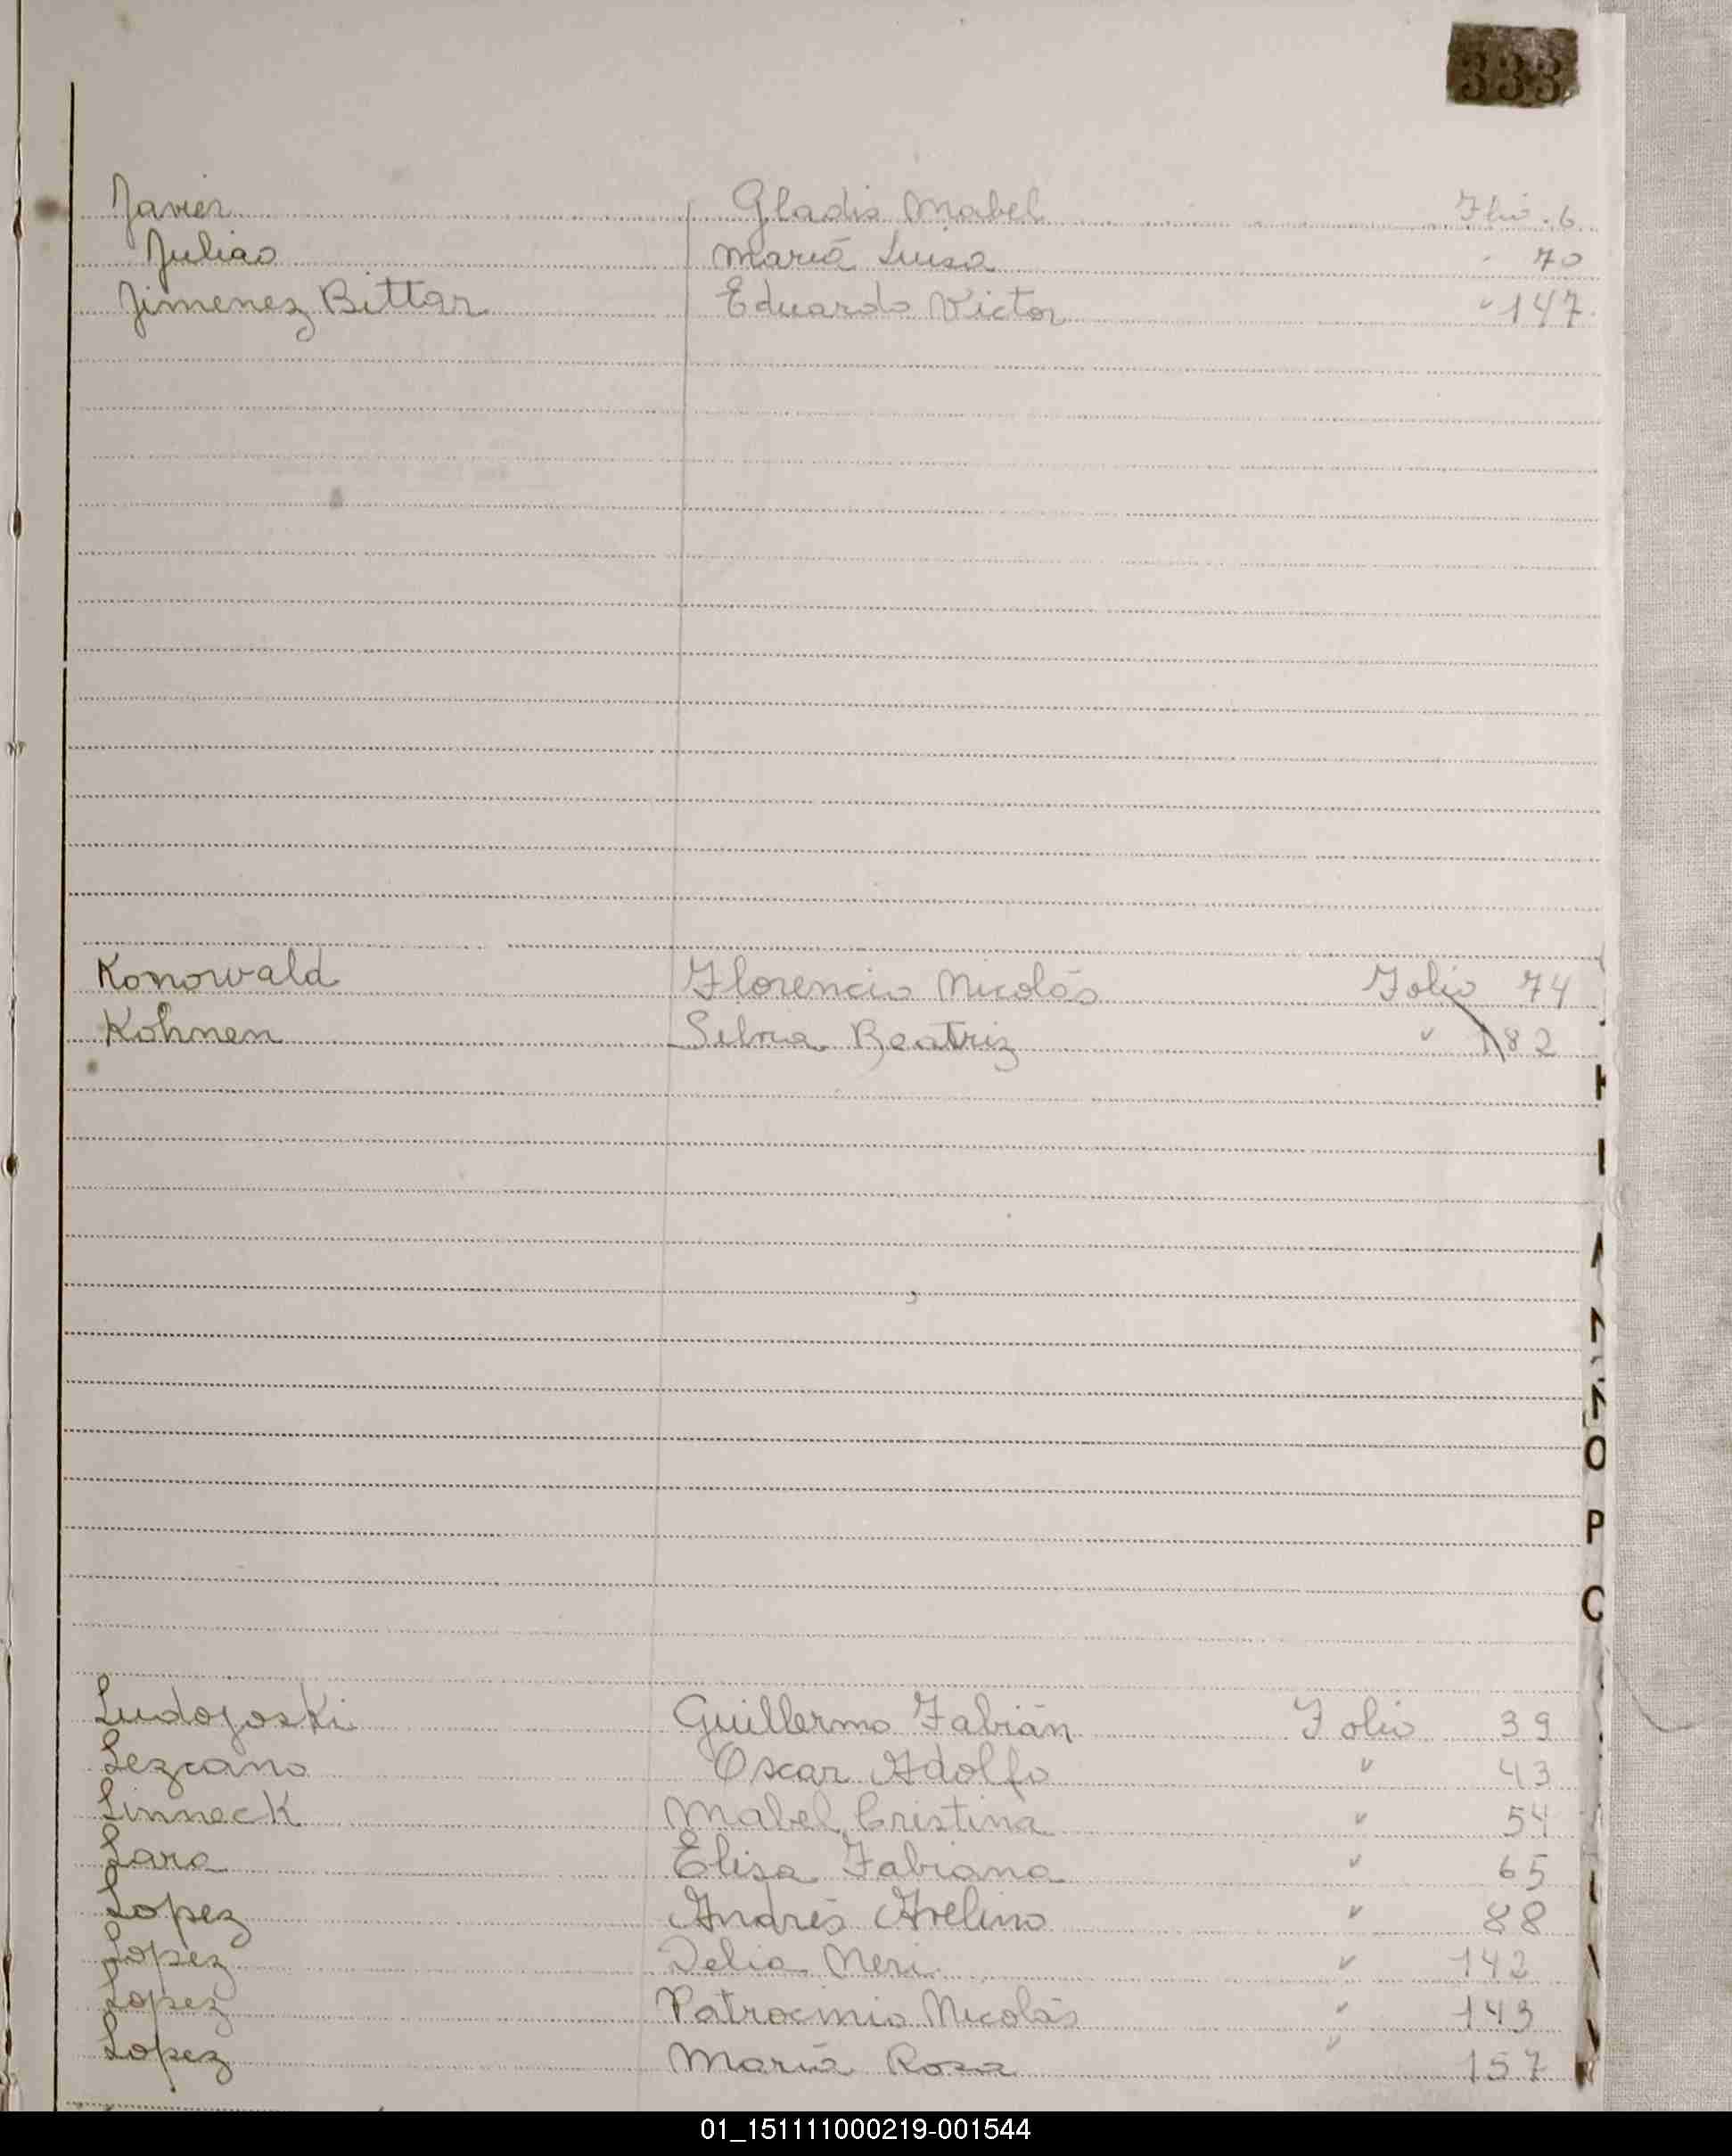 333
Javier Gladis Mabel Flio. 6
Juliao Maria Luisa " 70
Jimenez Bittar Eduardo Victor " 147
Konowald Florencio Nicolás Folio 74
Kohnen Silvia Beatriz " 182
K
L
O
P
Ludojoski Guillermo Fabián Folio 39
Lezcano Oscar Adolfo " 43
Linneck Mabel Cristina " 54
Lara Elisa Fabiana " 65
Lopez Andrés Avelino " 88
Lopez Delia Neri " 142
Lopez Patrocinio Nicolás " 143
Lopez María Rosa " 157
01_151111000219-001544